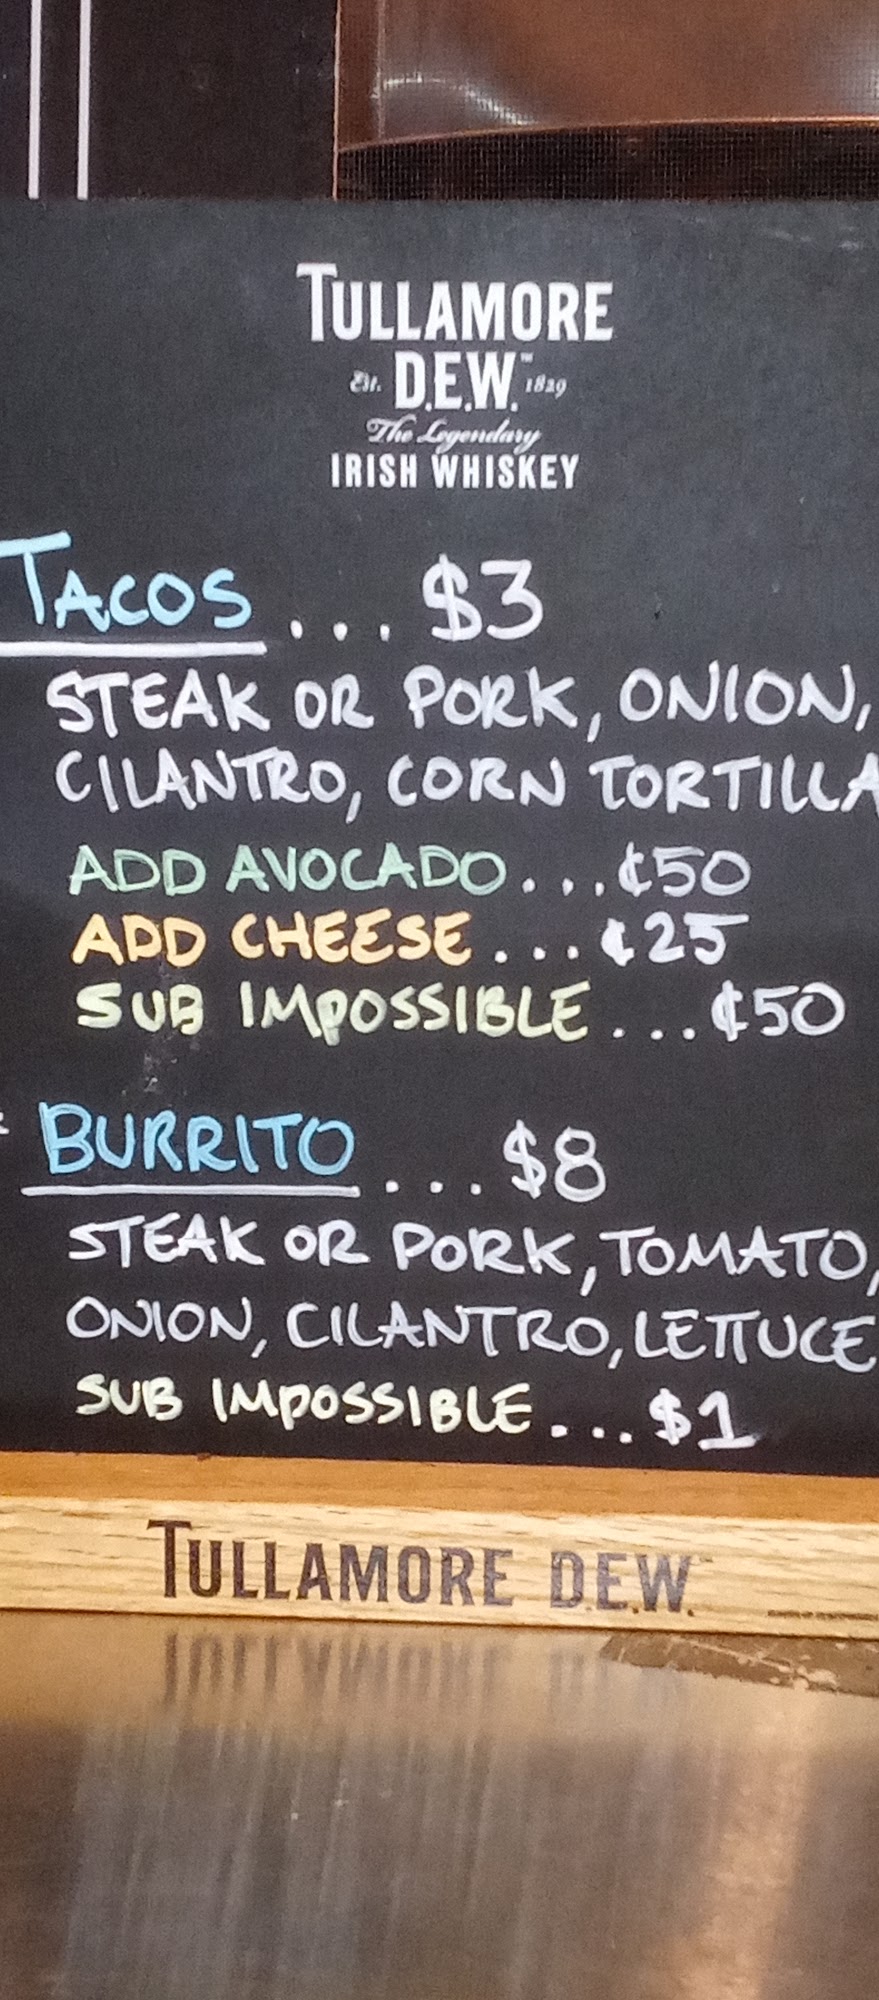 TULLAMORE
Est. D.E.W.™ 1829
The Legendary
IRISH WHISKEY
TACOS... $3
STEAK OR PORK, ONION,
CILANTRO, CORN TORTILLA
ADD AVOCADO...¢50
ADD CHEESE...¢25
SUB IMPOSSIBLE...¢50
BURRITO... $8
STEAK OR PORK, TOMATO,
ONION, CILANTRO, LETTUCE
SUB IMPOSSIBLE...$1
TULLAMORE D.E.W.™